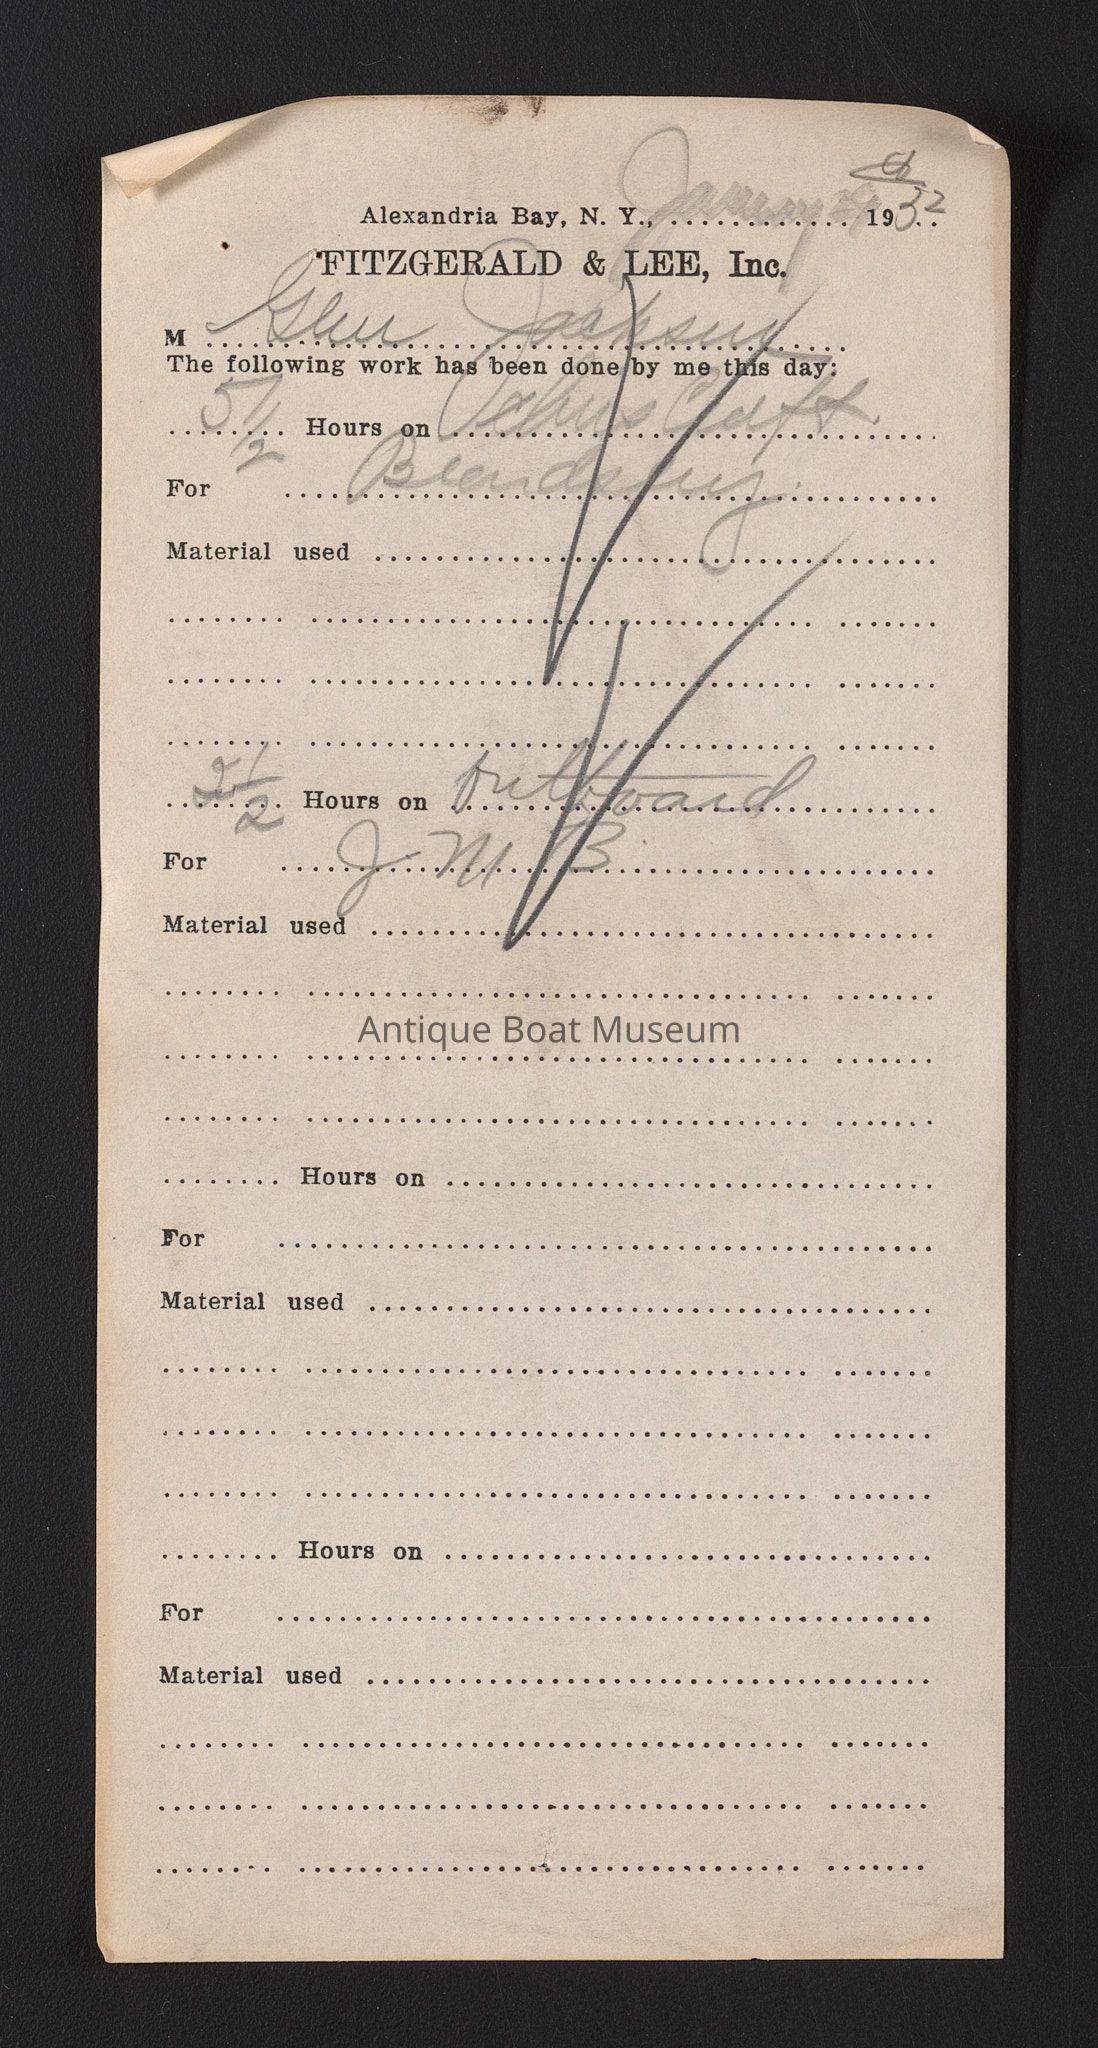 Alexandria Bay, N. Y., ............. January 1932
FITZGERALD & LEE, Inc.
M Glen Jackson
The following work has been done by me this day:
5 1/2 Hours on Craft
For
Material used
2 1/2 Hours on Outboard
For J. M B.
Material used
Antique Boat Museum
Hours on
For
Material used
Hours on
For
Material used